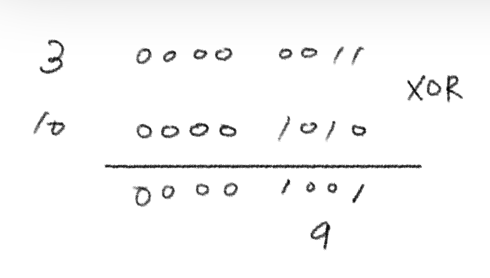 3 0000 0011
XOR
10 0000 1010
0000 1001
9